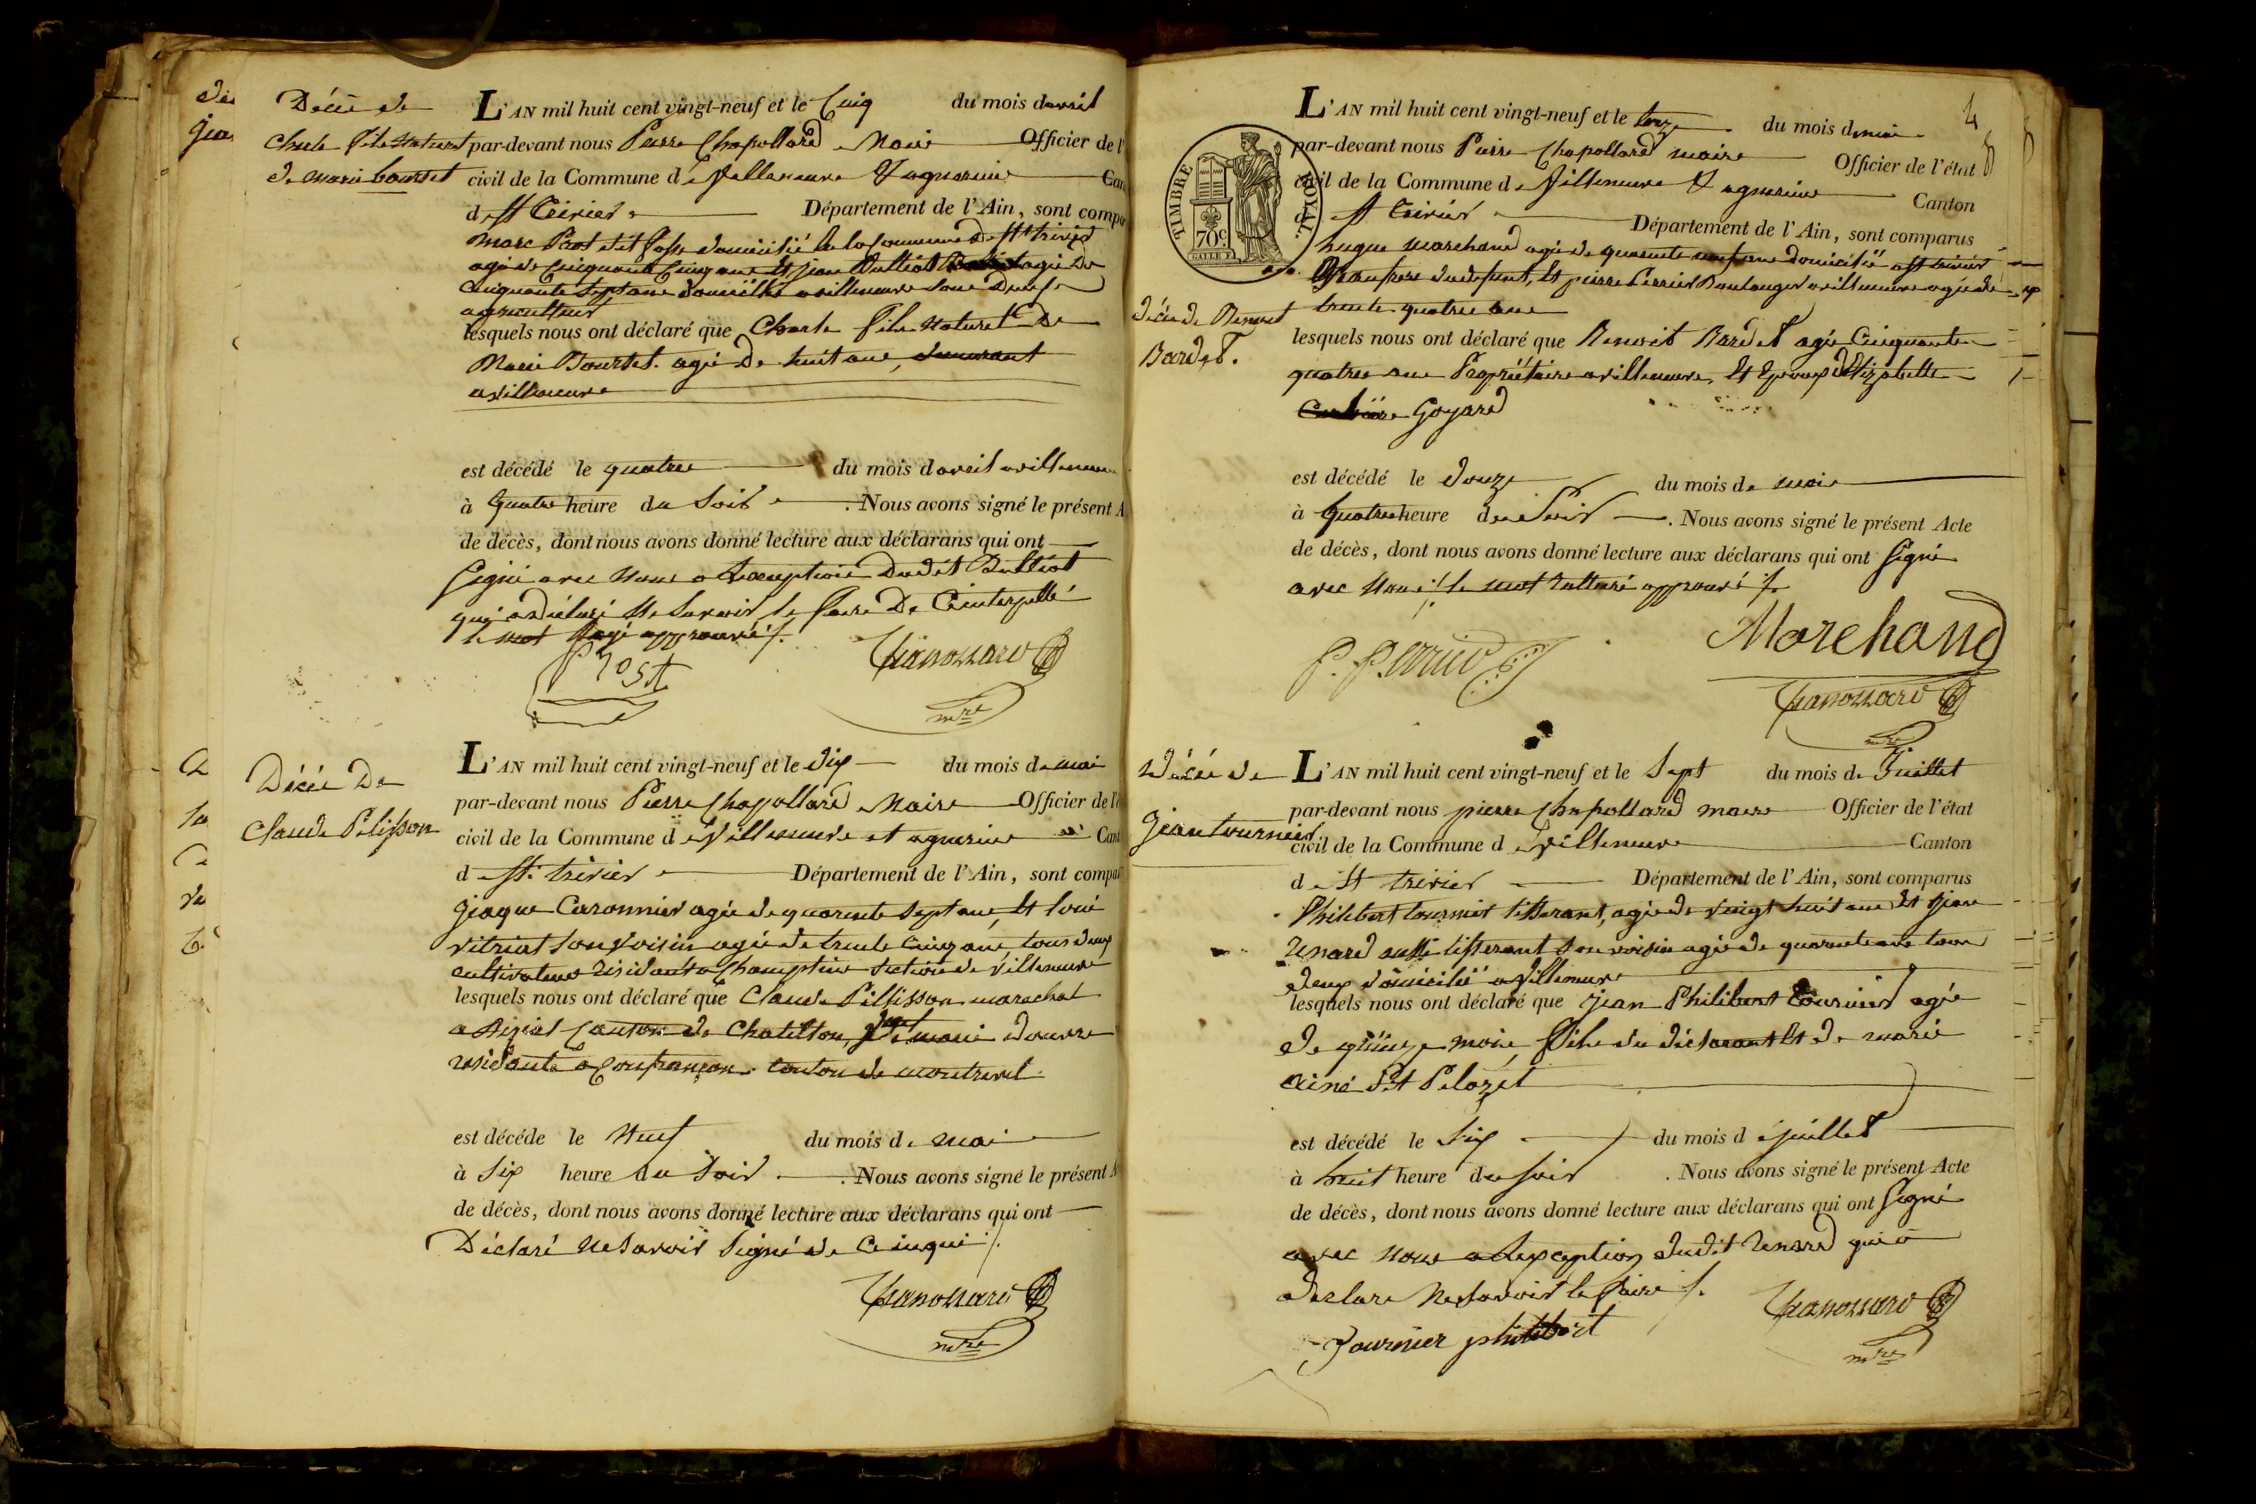 Décès de
Charle fils naturel
de marie bourtet
L'AN mil huit cent vingt-neuf et le Cinq du mois davril
par-devant nous Pierre Chapollard Maire Officier de l'
civil de la Commune de Villeneuve & agnereine Can
de St Trivier Département de l'Ain, sont compa
Marc Prost dit domicilié de la Commune de St trivier
agé de Cinquante Cinq ans Et jean Dulliot agé De
Cinquante Sept ans Domicillé a villeneuve tous Deux
agriculteurs
lesquels nous ont déclaré que Charle fils Naturel De
Marie Bourtet agé De huit ans, demeurant
a villeneuve
est décédé le quatre du mois davril a villeneuve
à quatre heure du Soir. Nous avons signé le présent A
de décès, dont nous avons donné lecture aux déclarans qui ont
Signé avec Nous a Lexception Dudit Dulliot
qui a Déclaré Ne Savoir le faire De Ce interpellé
le mot Rayé approuvé
Prost
Chapollard
mre
Décès De
Claude Pelisson
L'AN mil huit cent vingt-neuf et le dix du mois de mai
par-devant nous Pierre Chapollard Maire Officier de l'é
civil de la Commune de Villeneuve et agnereine Cant
de St. trivier Département de l'Ain, sont compar
Jacque Caronnier agée de quarente Sept ans, Et Loui
Vitriat Son Voisin agée de trente Cinq ans, tous deux
cultivateurs résidants a Champtein Section de Villeneuve
lesquels nous ont déclaré que Claude Pellisson marechal
a Canton de Chatillon, de marie
residante a Confrançon Canton de montrevel
est décéde le Neuf du mois de Mai
à Six heure du Soir. Nous avons signé le présent A
de décès, dont nous avons donné lecture aux déclarans qui ont
Déclaré Ne Savoir Signé de Ce inqui
Chapollard
mre
4
TIMBRE ROYAL
70c
L'AN mil huit cent vingt-neuf et le treize du mois de mai
par-devant nous Pierre Chapollard maire Officier de l'état
civil de la Commune de Villeneuve & agnereine Canton
de St Trivier Département de l'Ain, sont comparus
hugue Marchand agé de quarente neuf ans domicilié a St trivier
Beaufrere du defunt, Et pierre Perrier Boulanger a villeneuve agé de
trente quatre ans
Décès de Benoit
Bardet.
lesquels nous ont déclaré que Benoit Bardet agé Cinquante
quatre ans Propriétaire a villeneuve Et Epoux dElizabette
Goyard
est décédé le douze du mois de mai
à quatre heure du Soir. Nous avons signé le présent Acte
de décès, dont nous avons donné lecture aux déclarans qui ont Signé
avec Nous le mot Ratturé approuvé
P. Perrier
Marchand
Chapollard
mre
Décès de
Jean tournier
L'AN mil huit cent vingt-neuf et le Sept du mois de Juillet
par-devant nous pierre Chapollard maire Officier de l'état
civil de la Commune de Villeneuve Canton
de St trivier Département de l'Ain, sont comparus
Philibert tournier tisserant, agé de Vingt huit ans Et Jean
Renard aussi tisserant Son voisin agé de quarante ans tous
deux domicilié a Villeneuve
lesquels nous ont déclaré que Jean Philibert Tournier agée
de quinze mois, fils du déclarant Et de marie
Aimé Pelozet
est décédé le Six du mois de juillet
à huit heure du Soir. Nous avons signé le présent Acte
de décès, dont nous avons donné lecture aux déclarans qui ont Signé
avec Nous a Lexception dudit Renard qui a
declare Ne Savoir le faire
Tournier philibert
Chapollard
mre